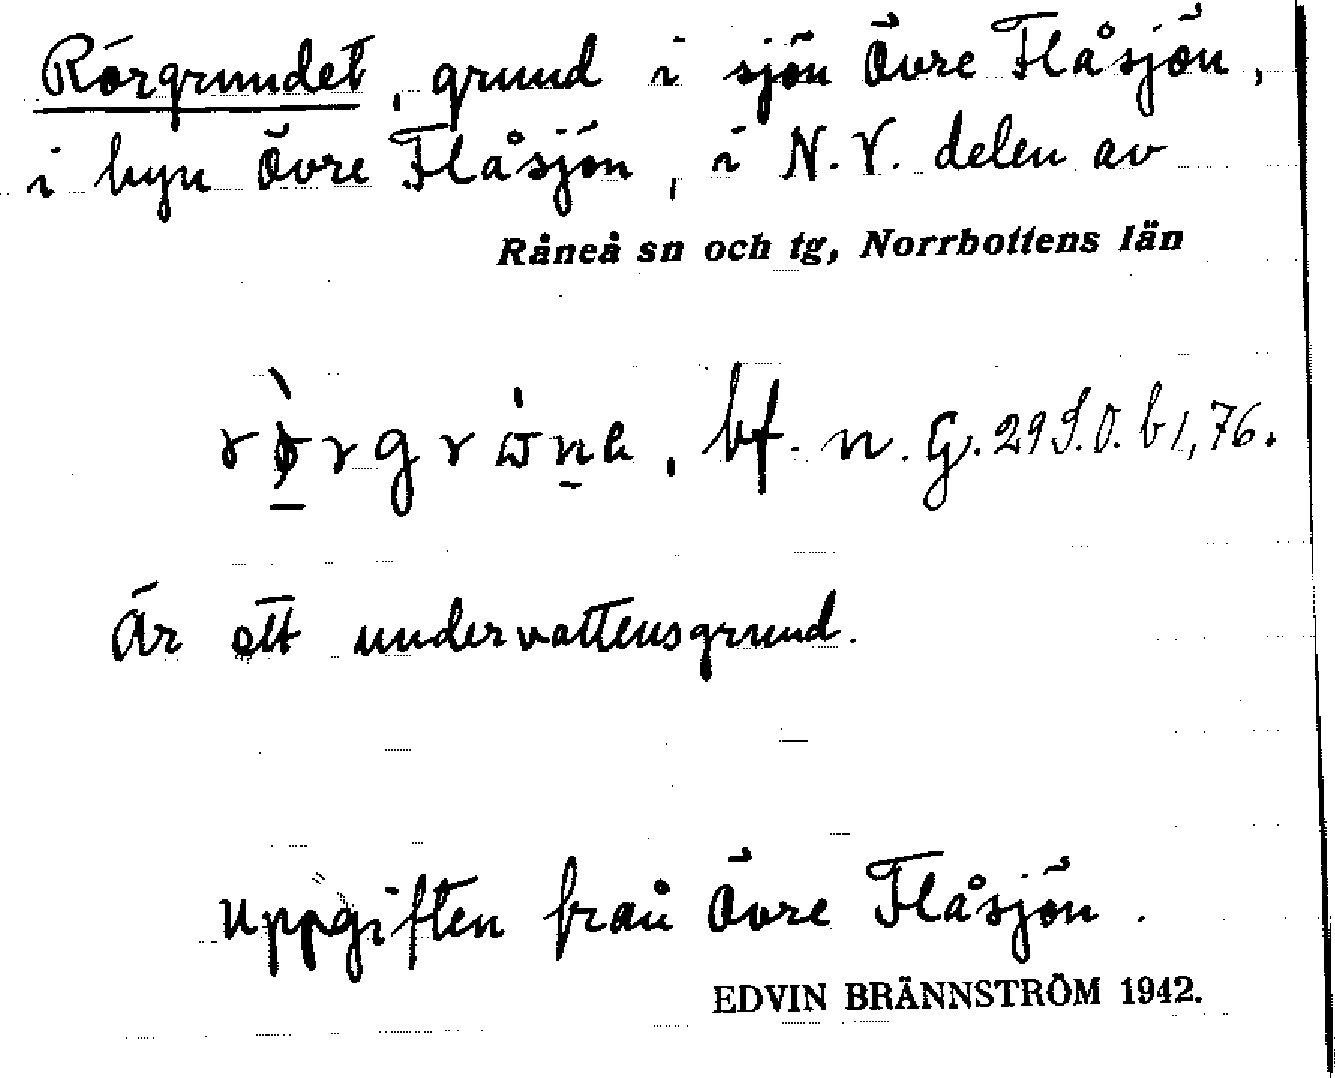 Rörgrundet, grund i sjön Övre Flåsjön,
i byn Övre Flåsjön, i N.V. delen av
Råneå sn och tg, Norrbottens län
bf. n. G. 29 S.O. b 1, 76.
Är ett undervattensgrund.
Uppgiften från Övre Flåsjön.
EDVIN BRÄNNSTRÖM 1942.